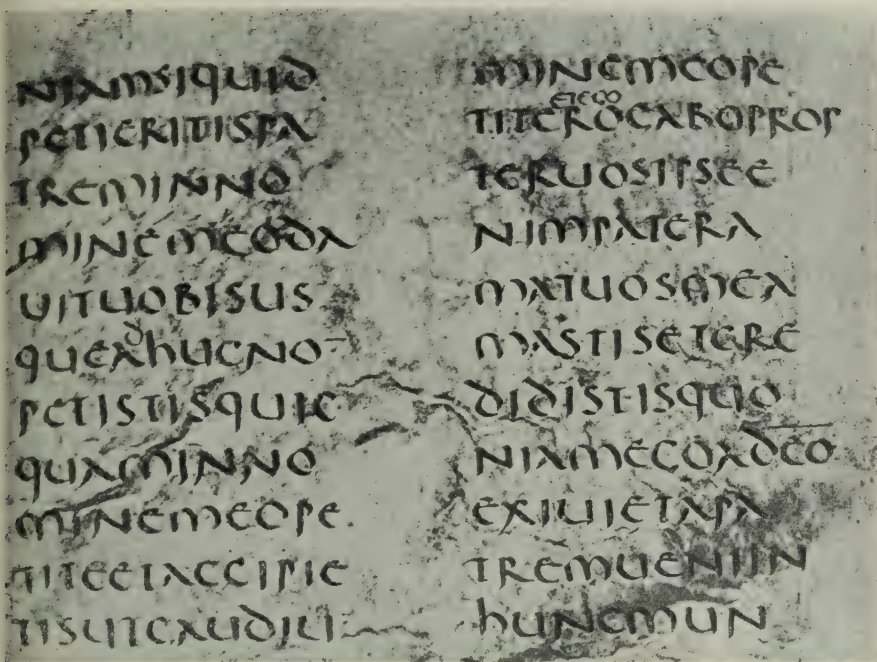 NIAMSIQUID
PETIERITISPA
TREMINNO
MINEMEODA
UITUOBISUS
QUEAdHUCNO‾
PETISTISQUIC
QUAMINNO
MINEMEOPE
TITEETACCIPIE
TISUTGAUDIU
MINEMEOPE
ETEGO
TITEROGABOPROP
TERUOSIPSEE
NIMPATERA
MATUOSMEA
MASTISETCRE
DIDISTISQUO
NIAMEGOADEO
EXIUIETAPA
TREMUENIIN
HUNCMUN